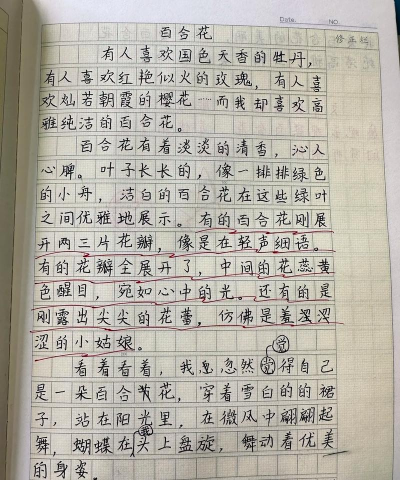 Date. NO.
百合花
修正栏
有人喜欢国色天香的牡丹,
有人喜欢红艳似火的玫瑰,有人喜
欢灿若朝霞的樱花……而我却喜欢高
雅纯洁的百合花。
百合花有着淡淡的清香,沁人
心脾。叶子长长的,像一排排绿色
的小舟,洁白的百合花在这些绿叶
之间优雅地展示。有的百合花刚展
开两三片花瓣,像是在轻声细语。
有的花瓣全展开了,中间的花蕊黄
色醒目,宛如心中的光。还有的是
刚露出尖尖的花蕾,仿佛是羞羞涩
涩的小姑娘。
看着看着,我忽然觉得自己
是一朵百合花,穿着雪白的的裙
子,站在阳光里,在微风中翩翩起
舞,蝴蝶在我头上盘旋,舞动着优美
的身姿。